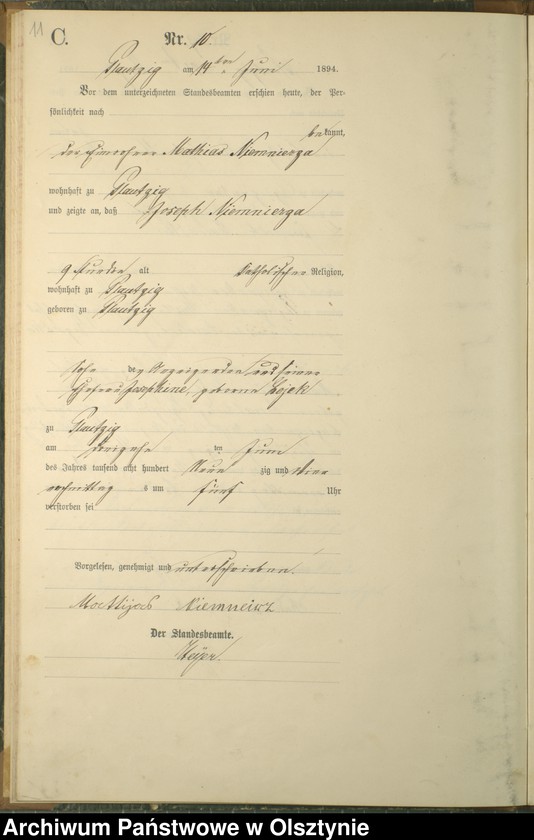 11
C. Nr. 10.
Plautzig am 14ten Juni 1894.
Vor dem unterzeichneten Standesbeamten erschien heute, der Per-
sönlichkeit nach
bekannt,
der Einwohner Mathias Niemnierza
wohnhaft zu Plautzig
und zeigte an, daß Joseph Niemnierza
9 Stunden alt katholischer Religion,
wohnhaft zu Plautzig
geboren zu Plautzig
Sohn des Anzeigenden und seiner
Ehefrau Josephine, geborene Lojek
zu Plautzig
am dreizehn ten Juni
des Jahres tausend acht hundert Neun zig und vier
nachmittag s um fünf Uhr
verstorben sei
Vorgelesen, genehmigt und unterschrieben.
Mattijas Niemneirz
Der Standesbeamte.